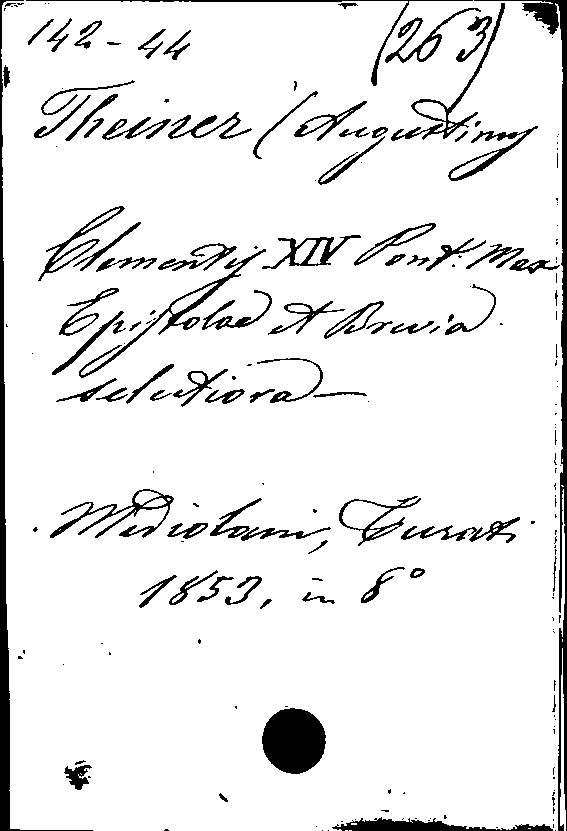 142-44 (263)
Theiner (Augustinus
Clementis XIV Pont. Max
Epistolae et Brevia
selectiora—
Mediolani, Turati
1853, in 8°